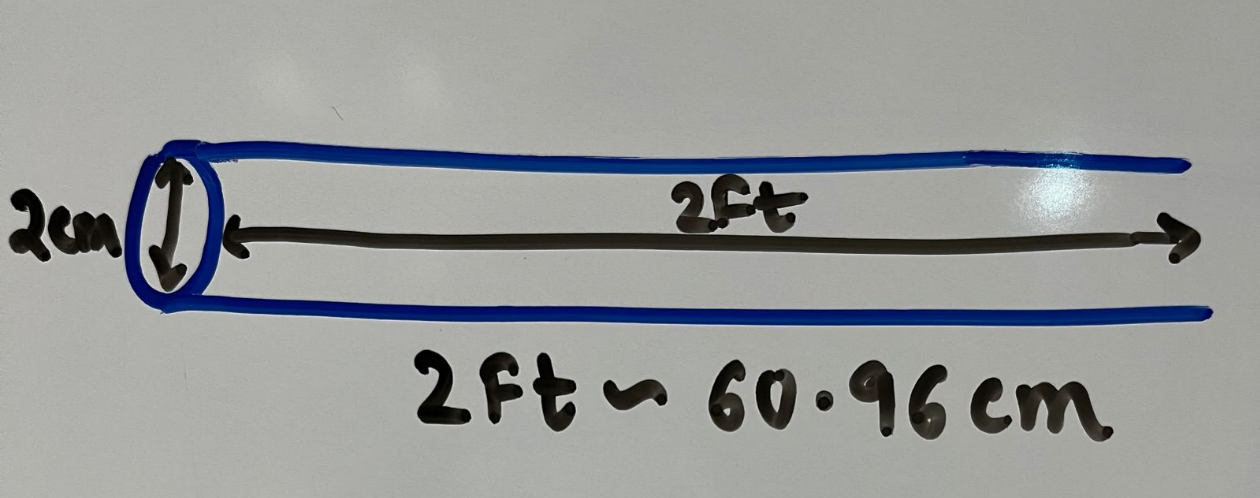 2cm
2Ft
2Ft ~ 60.96cm